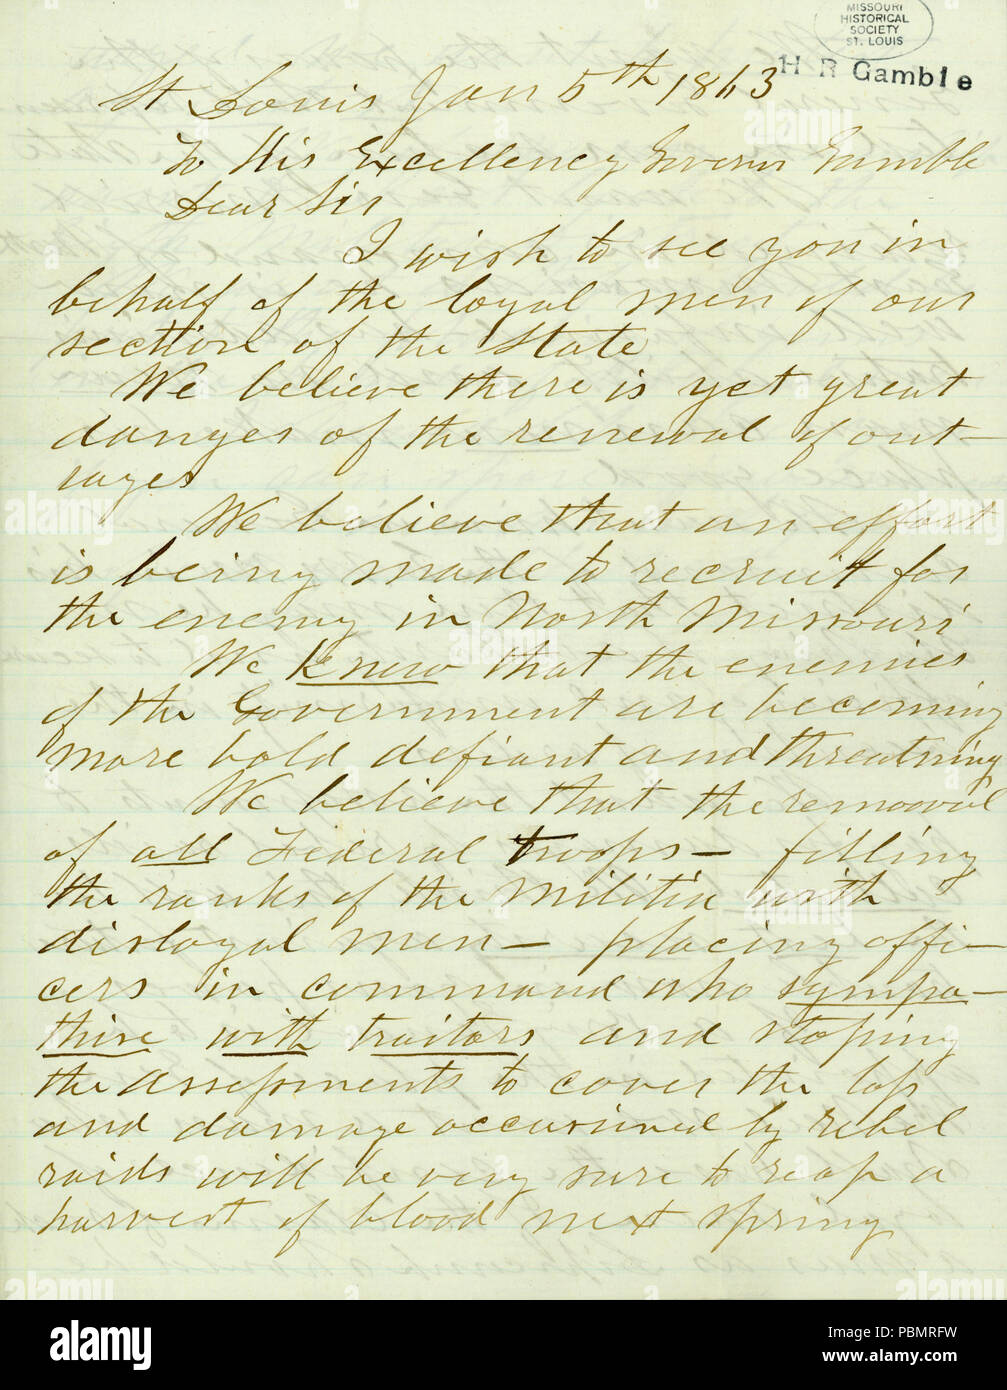 MISSOURI
HISTORICAL
SOCIETY
ST. LOUIS
H R Gamble
St Louis Jan 5th 1863
To His Excellency Govern Gamble
Dear Sir
I wish to see you in
behalf of the loyal men of our
section of the State
We believe there is yet great
danger of the renewal of out-
rages
We believe that an effort
is being made to recruit for
the enemy in North Missouri
We know that the enemies
of the Government are becoming
more bold defiant and threatning
We believe that the removal
of all Federal troops - filling
the ranks of the Militia with
disloyal men - placing offi-
cers in command who sympa-
thise with traitors and stoping
the assessments to cover the loss
and damage occasioned by rebel
raids will be very sure to reap a
harvest of blood next spring
alamy
Image ID: PBMRFW
www.alamy.com